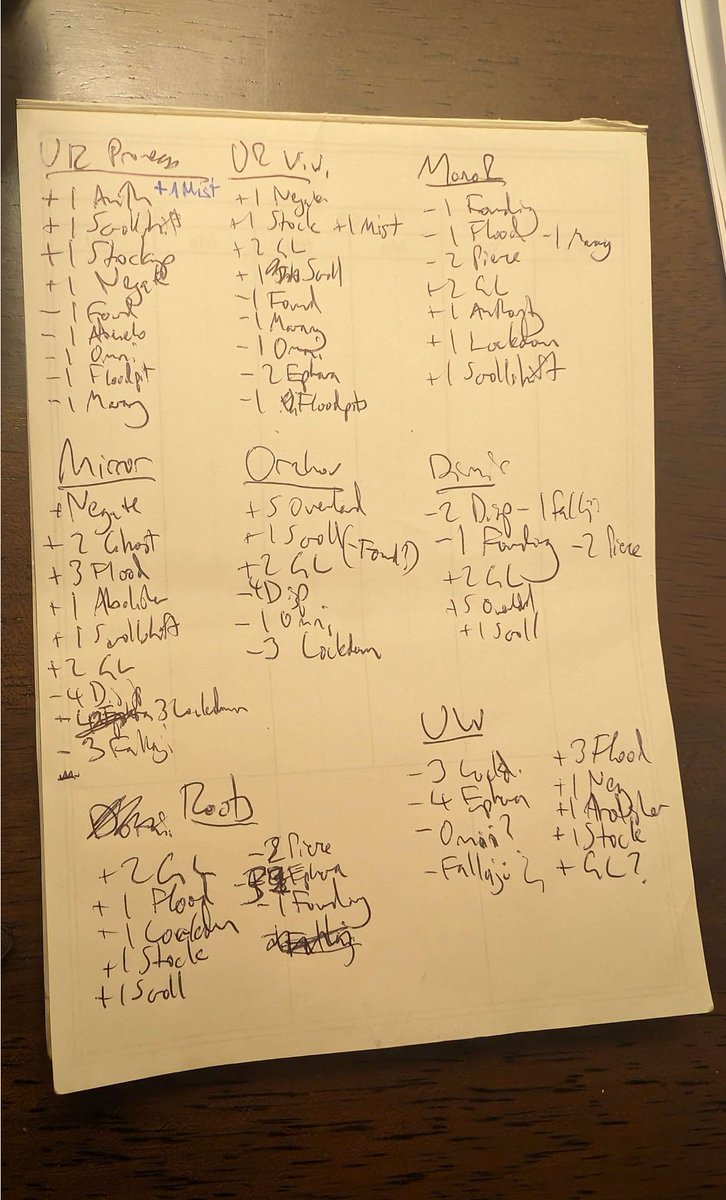 UR Prowess
+1 Auth +1 Mist
+1 Scrollshift
+1 Stockup
+1 Negate
-1 Found
-1
-1 Omni
-1 Floodpt
-1 Marang
UR Vivi
+1 Negate
+1 Stock +1 Mist
+2 GL
+1 Scroll
-1 Found
-1 Marang
-1 Omni
-2 Ephara
-1 Floodpits
Mono R
-1 Founding
-1 Flood -1 Marang
-2 Pierce
+2 GL
+1 Authority
+1 Lockdown
+1 Scrollshift
Mirror
+ Negate
+2 Ghost
+3 Flood
+1 Abolisher
+1 Scrollshift
+2 GL
-4 Disp
3 Lockdown
-3 Fallaji
Orzhov
+5 Overlord
+1 Scroll (-Found?)
+2 GL
-4 Disp
-1 Omni
-3 Lockdown
Dimir
-2 Disp -1 Fallaji
-1 Founding -2 Pierce
+2 GL
+5 Overlord
+1 Scroll
Roots
+2 GL
+1 Flood
+1 Lockdown
+1 Stock
+1 Scroll
-2 Pierce
Ephara
-1 Founding
UW
-3 Lockd.
-4 Ephara
-Omni?
-Fallaji?
+3 Flood
+1 Neg
+1 Abolisher
+1 Stock
+ GL?